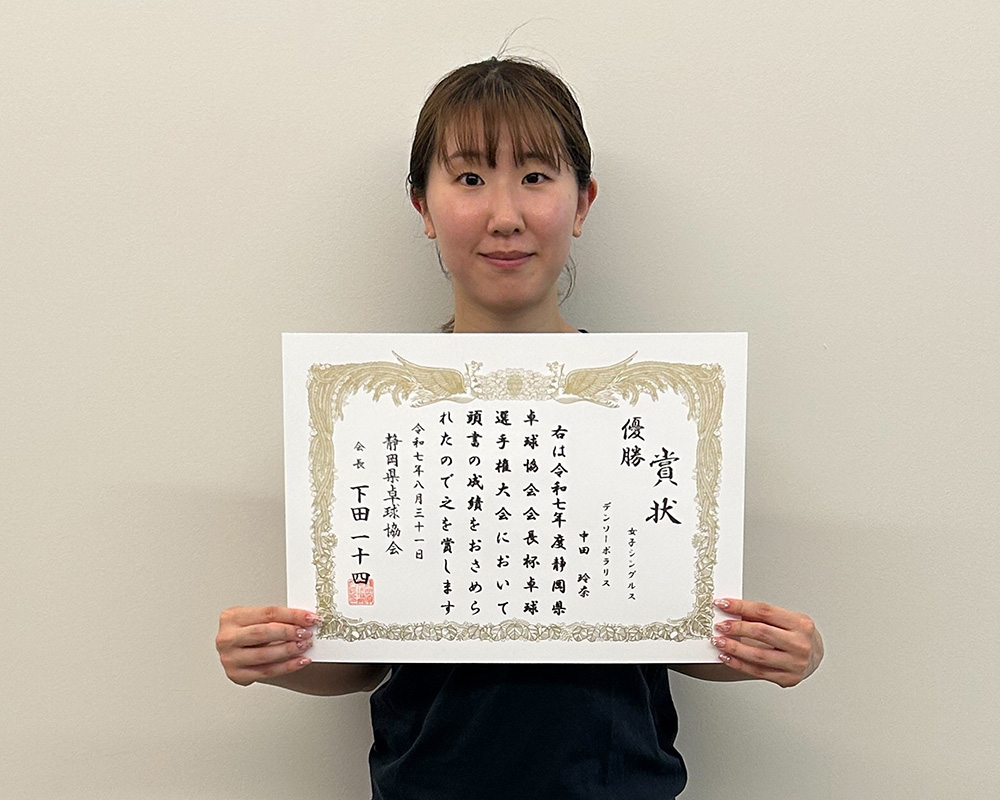 賞状
優勝
女子シングルス
デンソーポラリス
中田 玲奈
右は令和七年度静岡県
卓球協会会長杯卓球
選手権大会において
頭書の成績をおさめら
れたので之を賞します
令和七年八月三十一日
静岡県卓球協会
会長 下田一十四